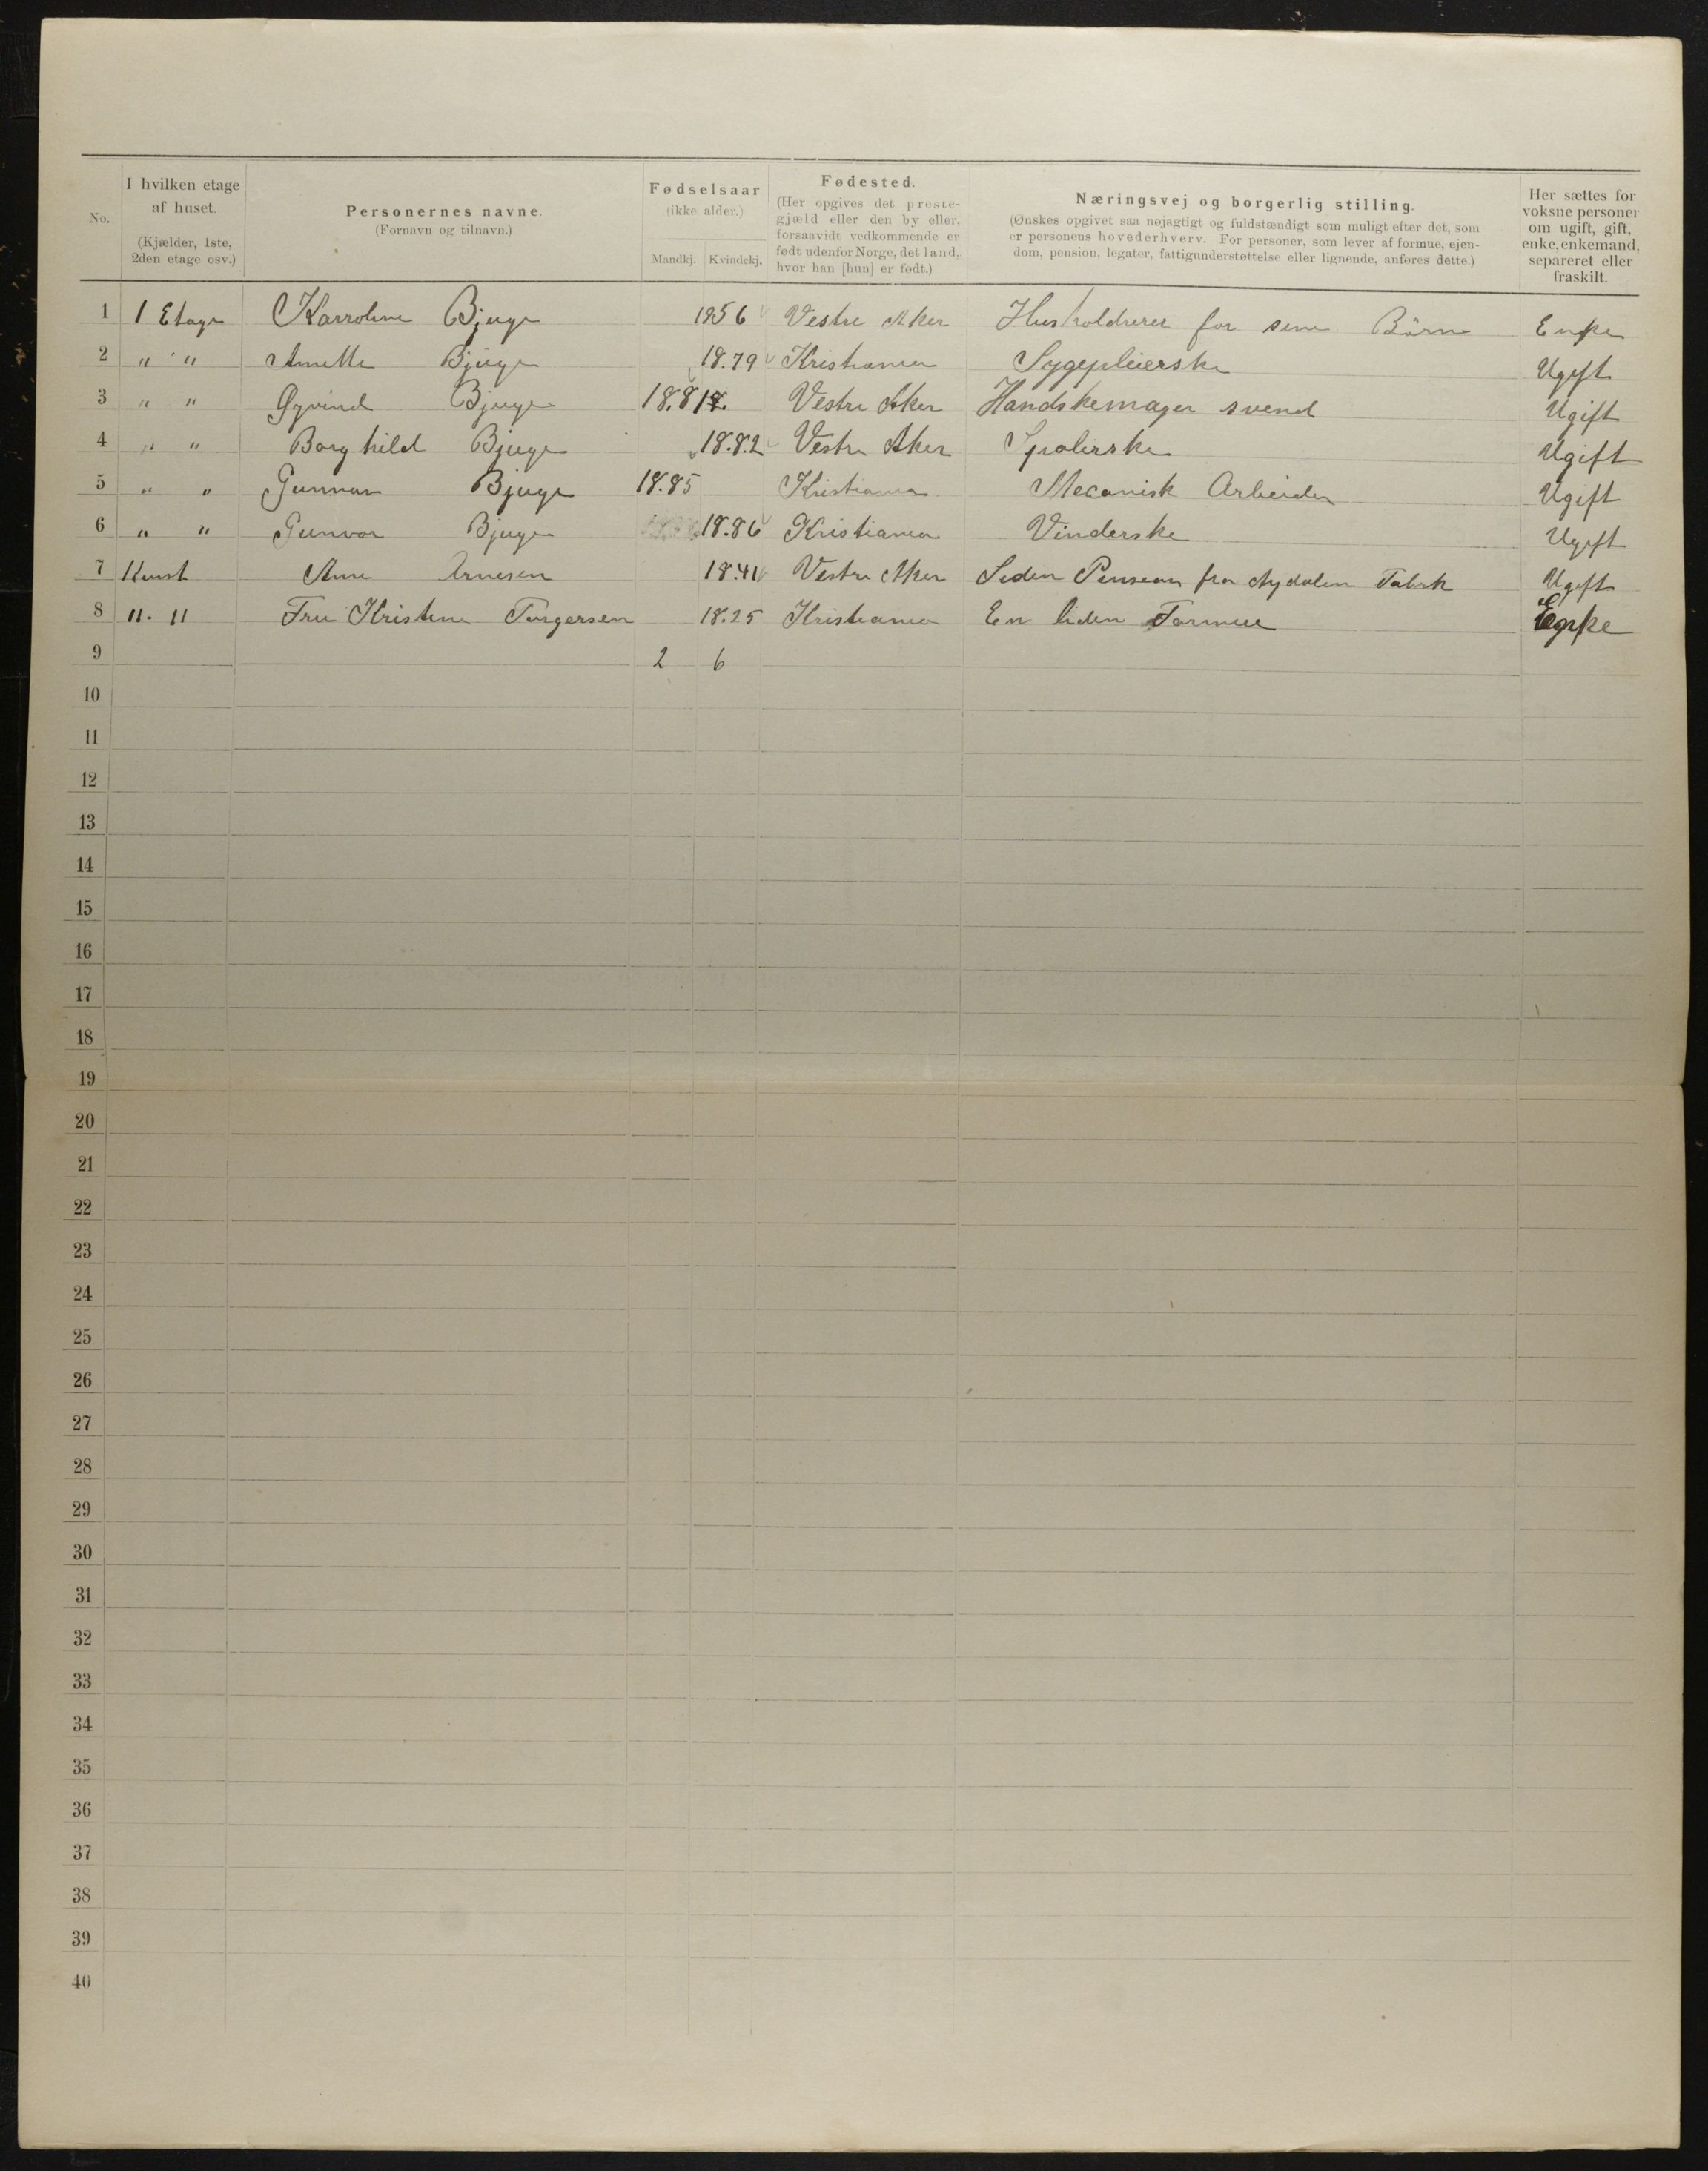 No.
I hvilken etage
af huset.
(Kjælder, 1ste,
2den etage osv.)
Personernes navne.
(Fornavn og tilnavn.)
Fødselsaar
(ikke alder.)
Mandkj. Kvindekj.
Fødested.
(Her opgives det preste-
gjæld eller den by eller,
forsaavidt vedkommende er
født udenfor Norge, det land,
hvor han [hun] er født.)
Næringsvej og borgerlig stilling.
(Ønskes opgivet saa nøjagtigt og fuldstændigt som muligt efter det, som
er personens hovederhverv. For personer, som lever af formue, ejen-
dom, pension, legater, fattigunderstøttelse eller lignende, anføres dette.)
Her sættes for
voksne personer
om ugift, gift,
enke, enkemand,
separeret eller
fraskilt.
1 1 Etage Karroline Bjuge 1856 Vestre Aker Husholdrerer for sine Börn Enke
2 " " Anette Bjuge 18.79 Kristiania Sygepleierske Ugift
3 " " Øyvind Bjuge 18.81 Vestre Aker Handskemager svend Ugift
4 " " Borghild Bjuge 18.82 Vestre Aker Spolerske Ugift
5 " " Gunnar Bjuge 18.85 Kristiania Mecanisk Arbeider Ugift
6 " " Gunvor Bjuge 18.86 Kristiania Vinderske Ugift
7 Kvist Ane Arnesen 18.41 Vestre Aker Liden Pension fra Nydalen Fabrik Ugift
8 11. 11 Fru Kristine Torgersen 18.25 Kristiania En liden Formue Enke
9 2 6
10
11
12
13
14
15
16
17
18
19
20
21
22
23
24
25
26
27
28
29
30
31
32
33
34
35
36
37
38
39
40